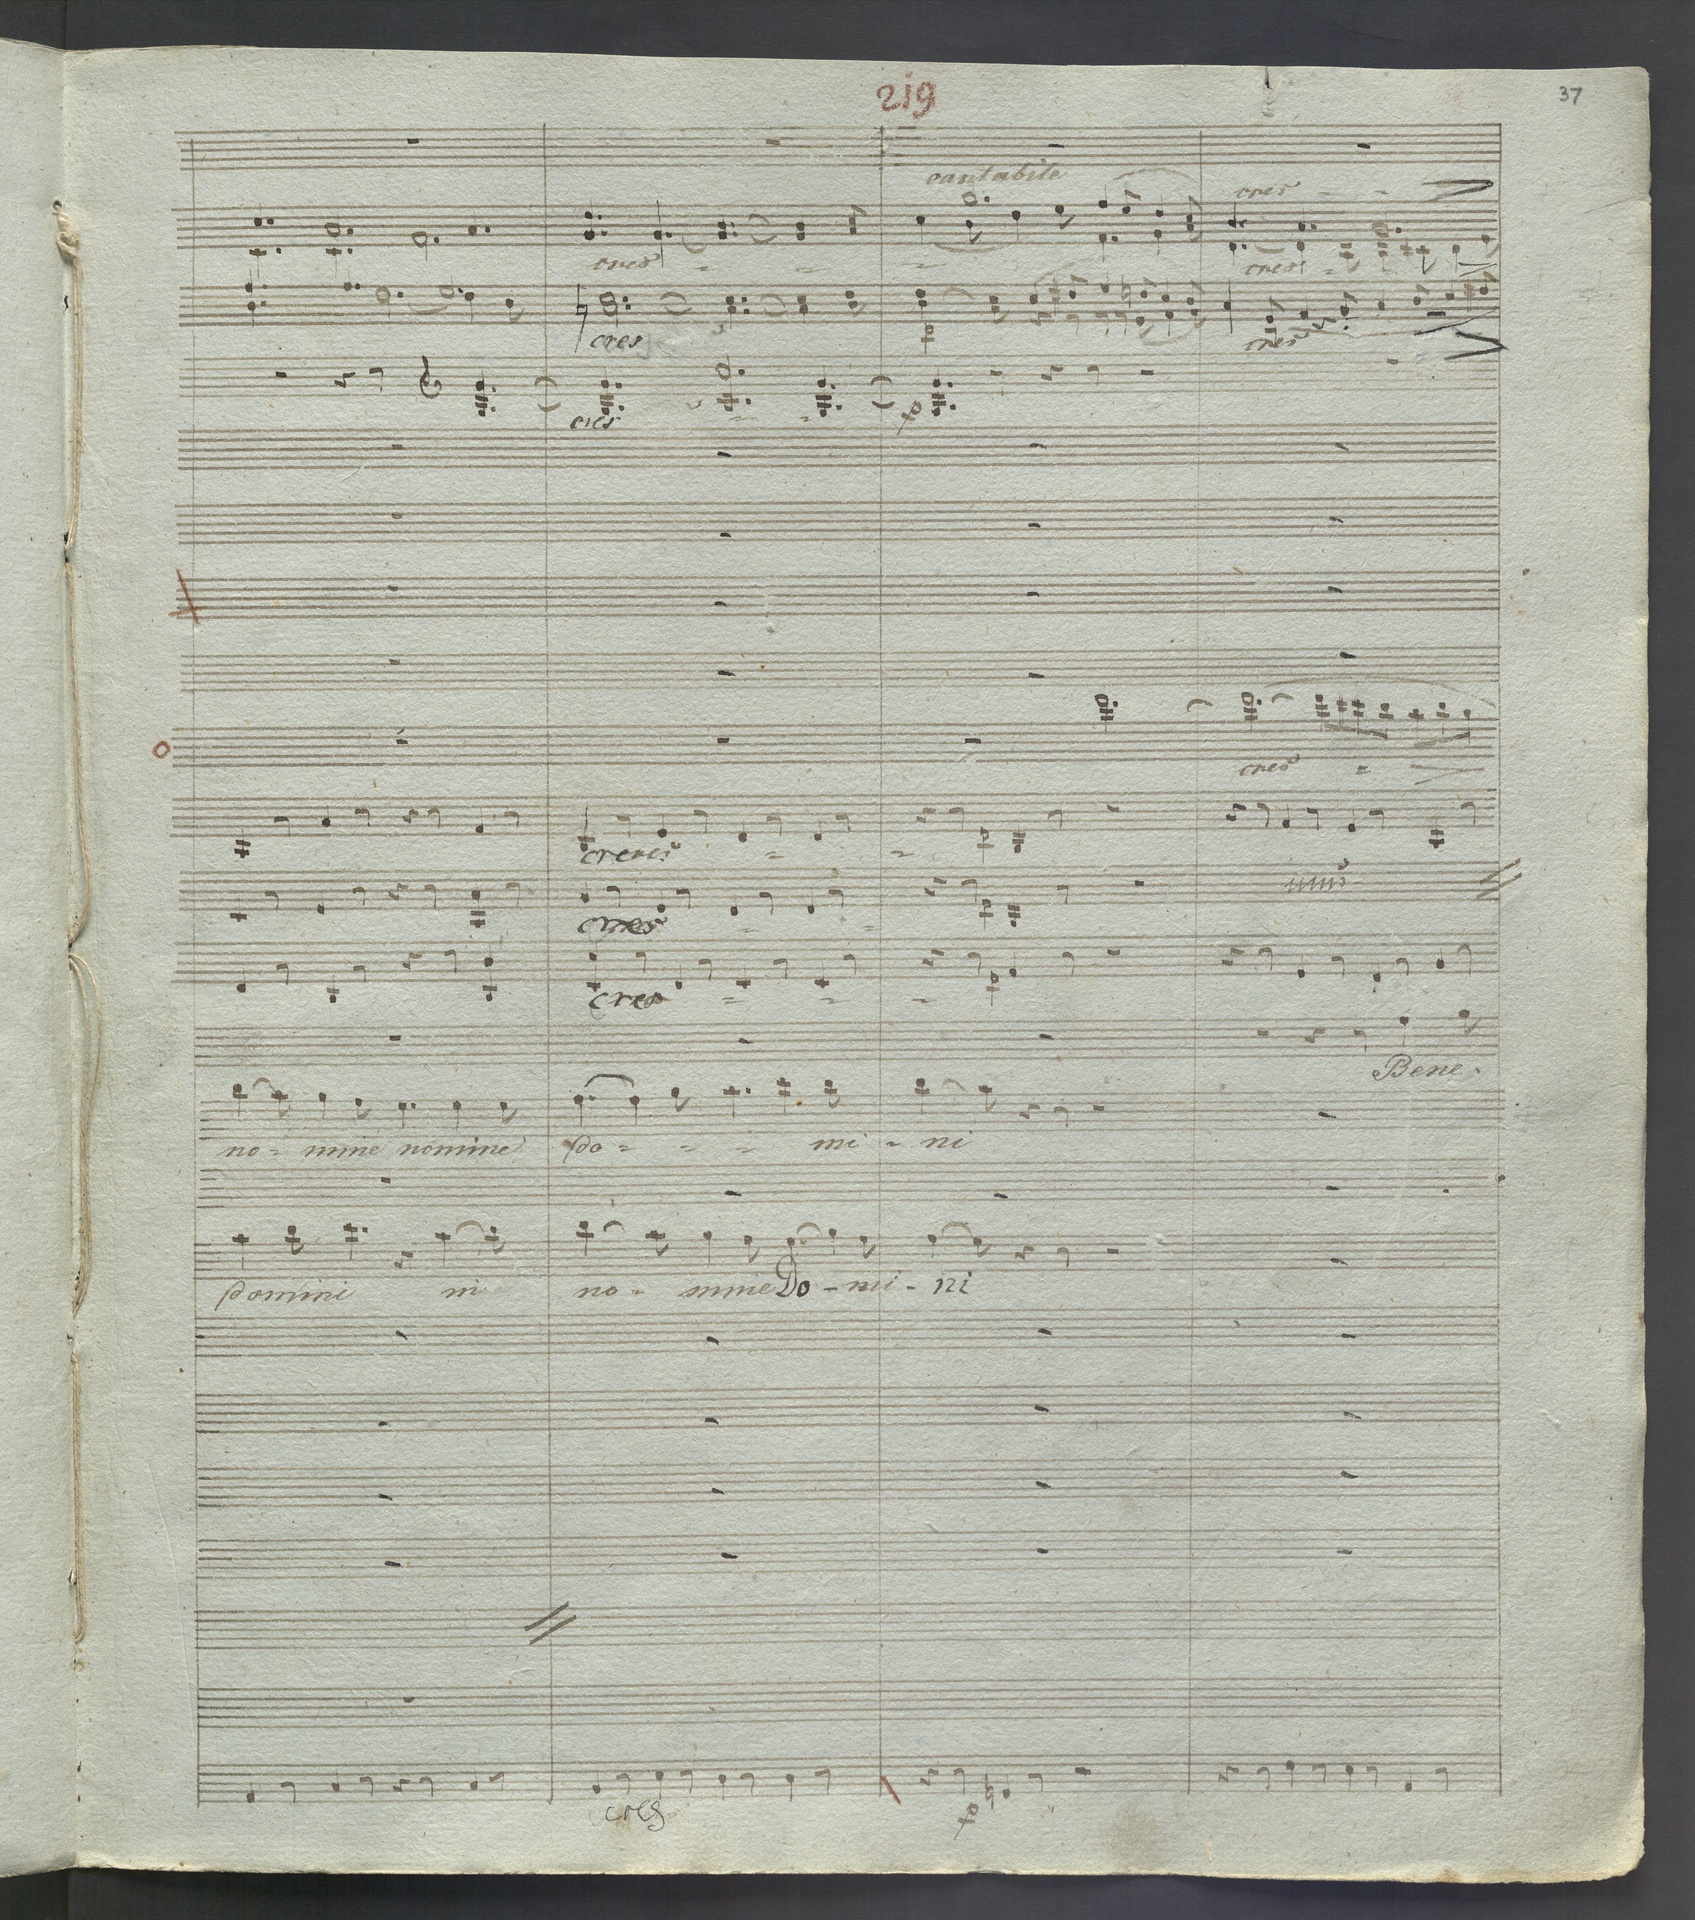 219
37
cantabile
cres
cres
cres
cres
cres
cres
p
cres
p
cres
cres
cres
cres
Bene-
no- mine nomine Do- mi- ni
Domini in no- mine Do-mi-ni
cres
p